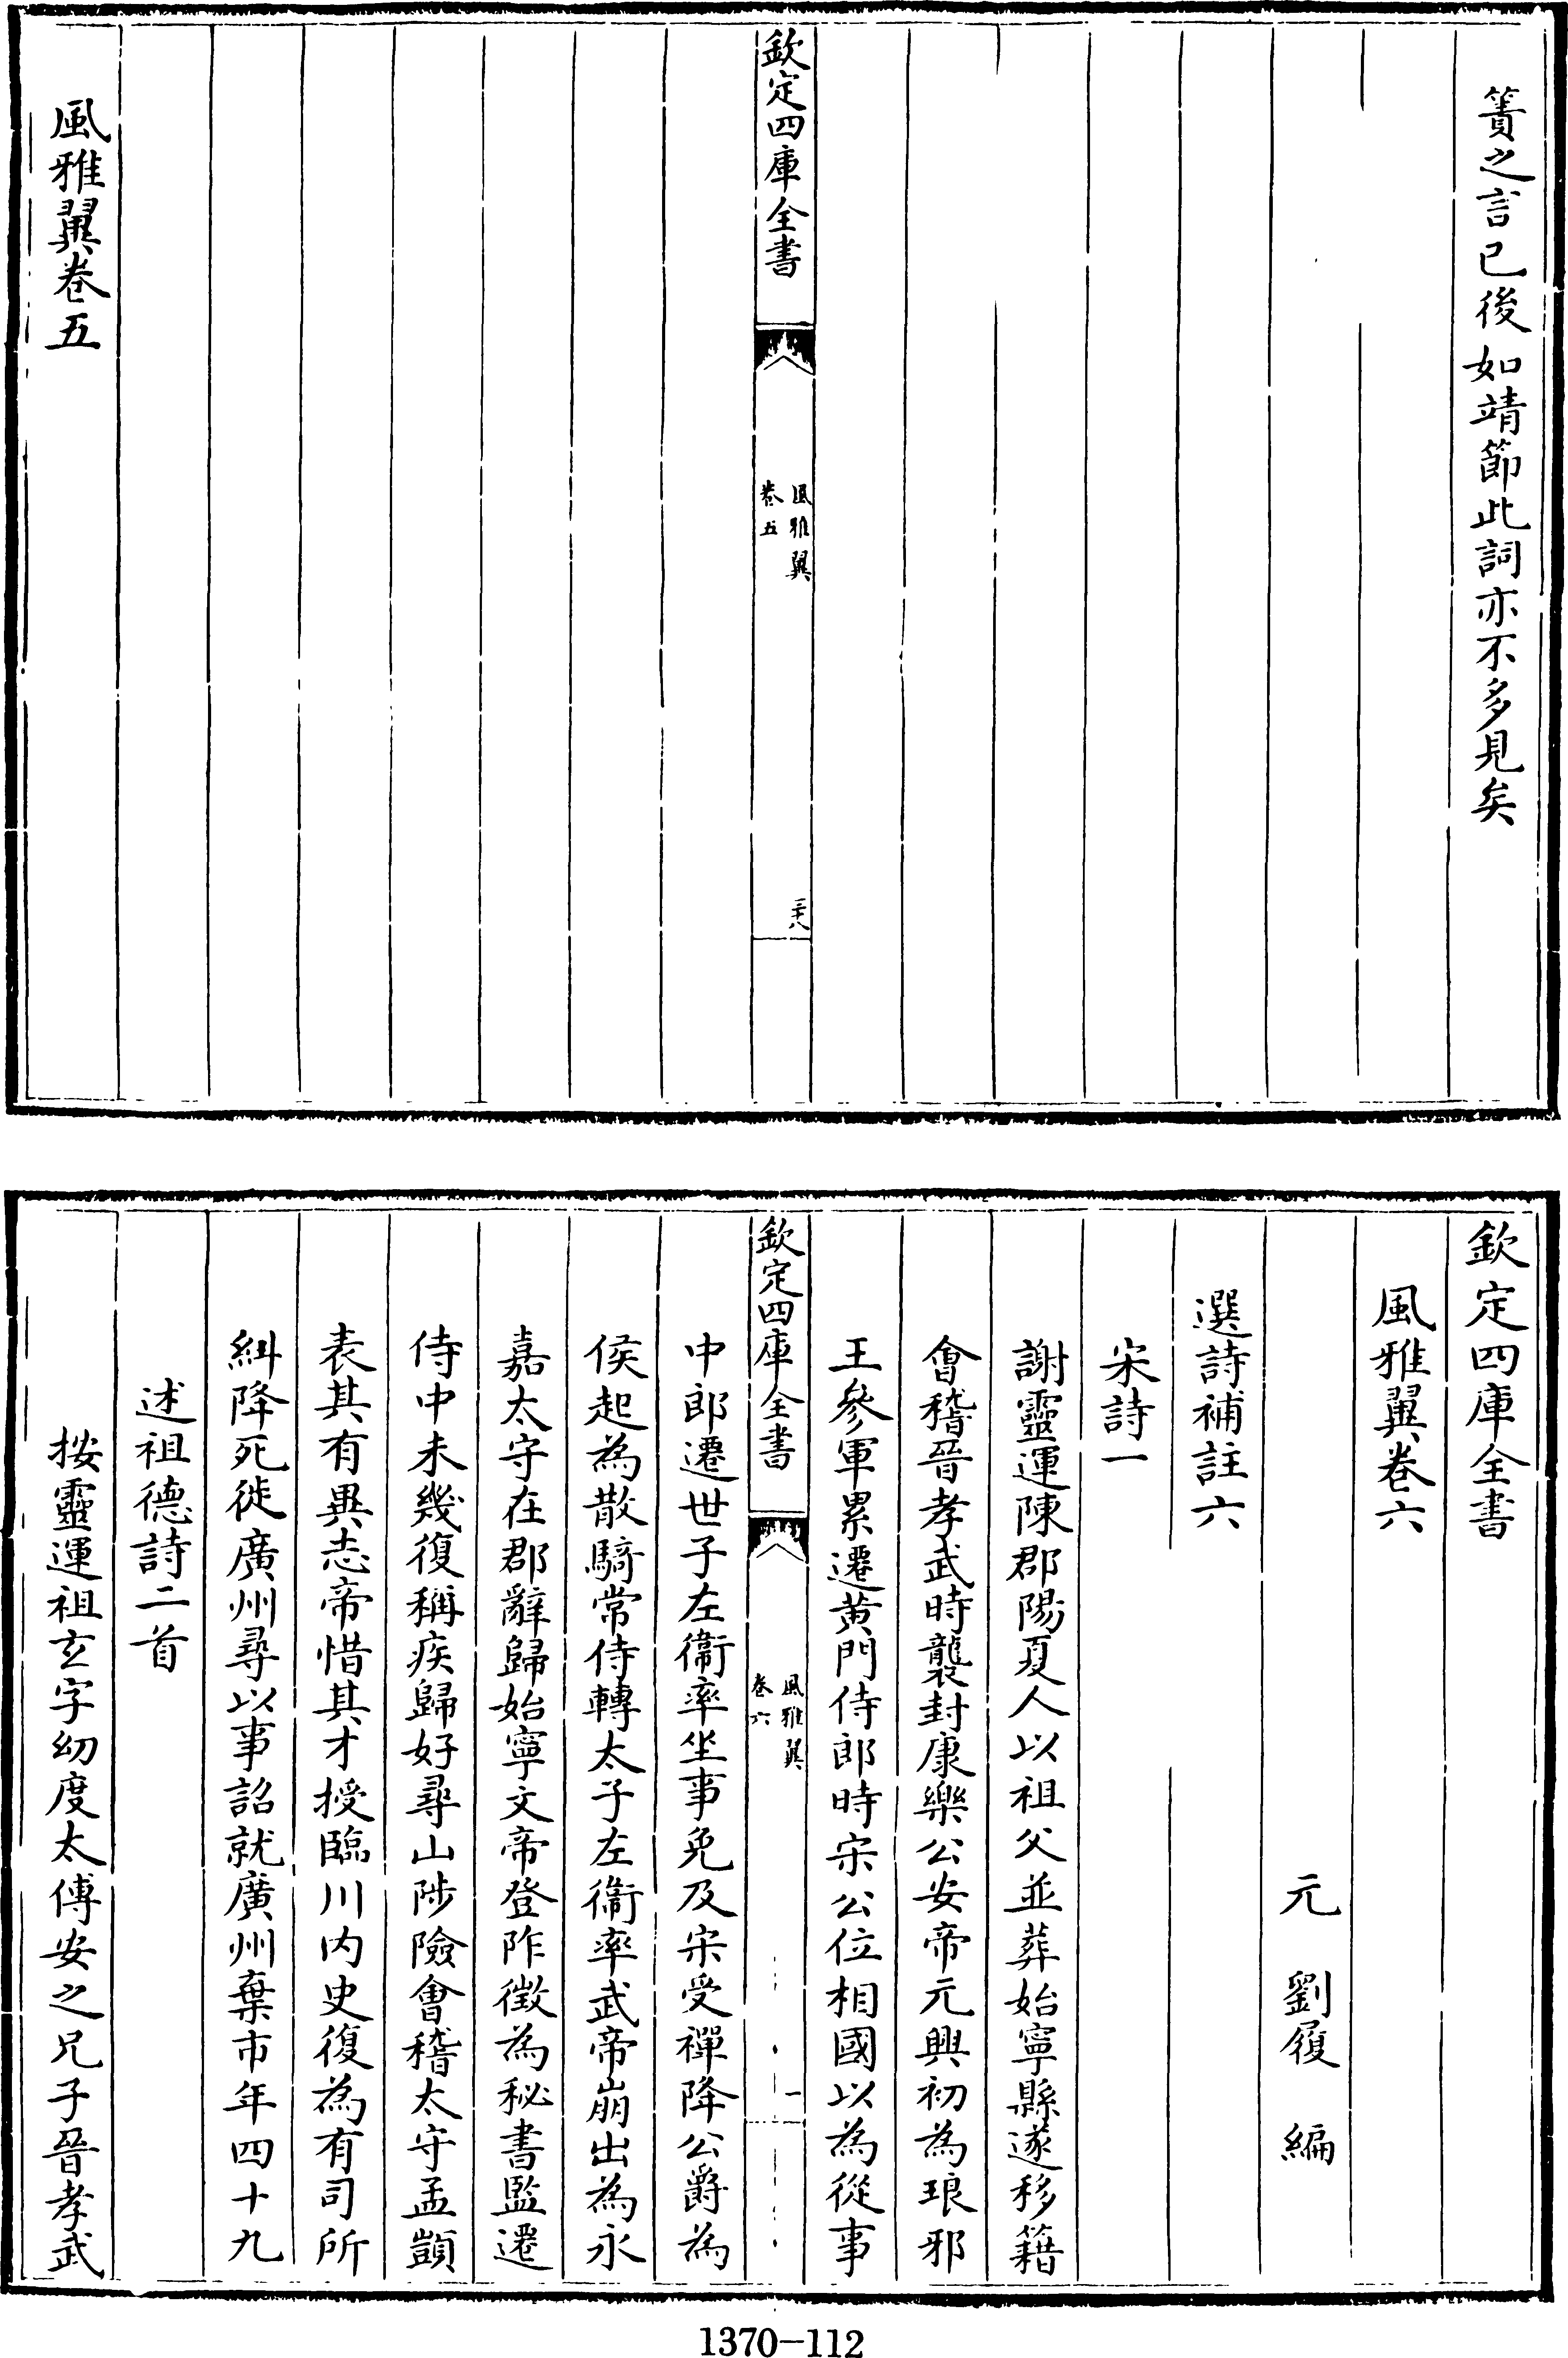 簀之言已後如靖節此詞亦不多見矣
欽定四庫全書
風雅翼
卷五
三十八
風雅翼卷五
欽定四庫全書
風雅翼卷六
元 劉履 編
選詩補註六
宋詩一
謝靈運陳郡陽夏人以祖父並葬始寧縣遂移籍
會稽晉孝武時襲封康樂公安帝元興初為琅邪
王參軍累遷黃門侍郎時宋公位相國以為從事
欽定四庫全書
風雅翼
卷六
一
中郎遷世子左衞率坐事免及宋受禪降公爵為
侯起為散騎常侍轉太子左衞率武帝崩出為永
嘉太守在郡辭歸始寧文帝登阼徵為秘書監遷
侍中未幾復稱疾歸好尋山陟險會稽太守孟顗
表其有異志帝惜其才授臨川内史復為有司所
糾降死徙廣州尋以事詔就廣州棄市年四十九
述祖德詩二首
按靈運祖玄字幼度太傅安之兄子晉孝武
1370-112